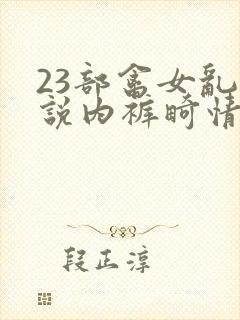 23部畜女乱
説内裤畸情
段正淳